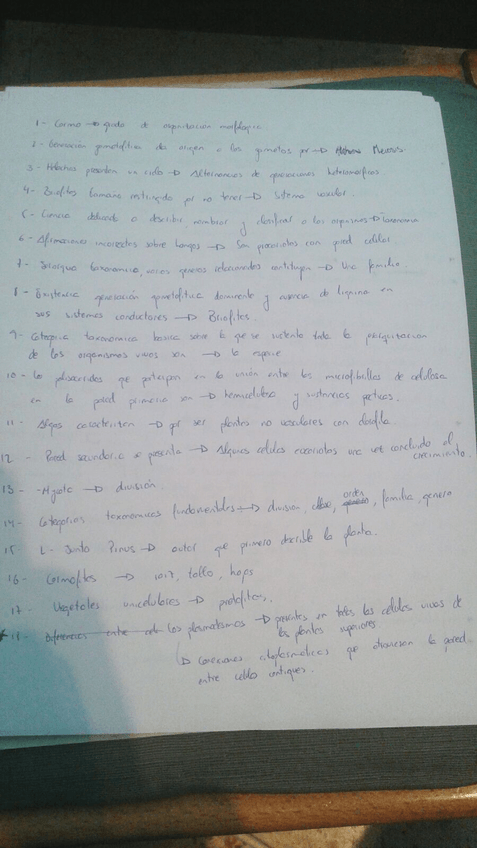 1- Cormo → grado de organización morfológica
2- Generación gametofítica da origen a los gametos por → Mitosis.
3- Helechos presentan un ciclo → Alternancia de generaciones heteromórficas.
4- Briofitos tamaño restringido por no tener → Sistema vascular.
5- Ciencia dedicada a describir nombrar y clasificar a los organismos → Taxonomía
6- Afirmaciones incorrectas sobre hongos → Son procariotas con pared celular
7- Jerarquía taxonómica, varios géneros relacionados constituyen → Una familia.
8- Existencia generación gametofítica dominante y ausencia de lignina en
sus sistemas conductores → Briofitas.
9- Categoría taxonómica básica sobre la que se sustenta toda la
de los organismos vivos son → la especie
10- los polisacáridos que participan en la unión entre las microfibrillas de celulosa
en la pared primaria son → hemicelulosa y sustancias pécticas.
11- Algas caracterizan → por ser plantas no vasculares con clorofila.
12- Pared secundaria se presenta → Algunas células eucariotas una vez concluido el
crecimiento.
13- -Phyta → división.
14- Categorías taxonómicas fundamentales → división, clase, orden, familia, género
15- L. Junto Pinus → autor que primero describe la planta.
16- Cormofitas → raíz, tallo, hojas
17- Vegetales unicelulares → protofitas.
18- Diferencias entre los plasmodesmos → presentes en todas las células vivas de
las plantas superiores
↳ Conexiones citoplasmáticas que atraviesan la pared
entre células contiguas.